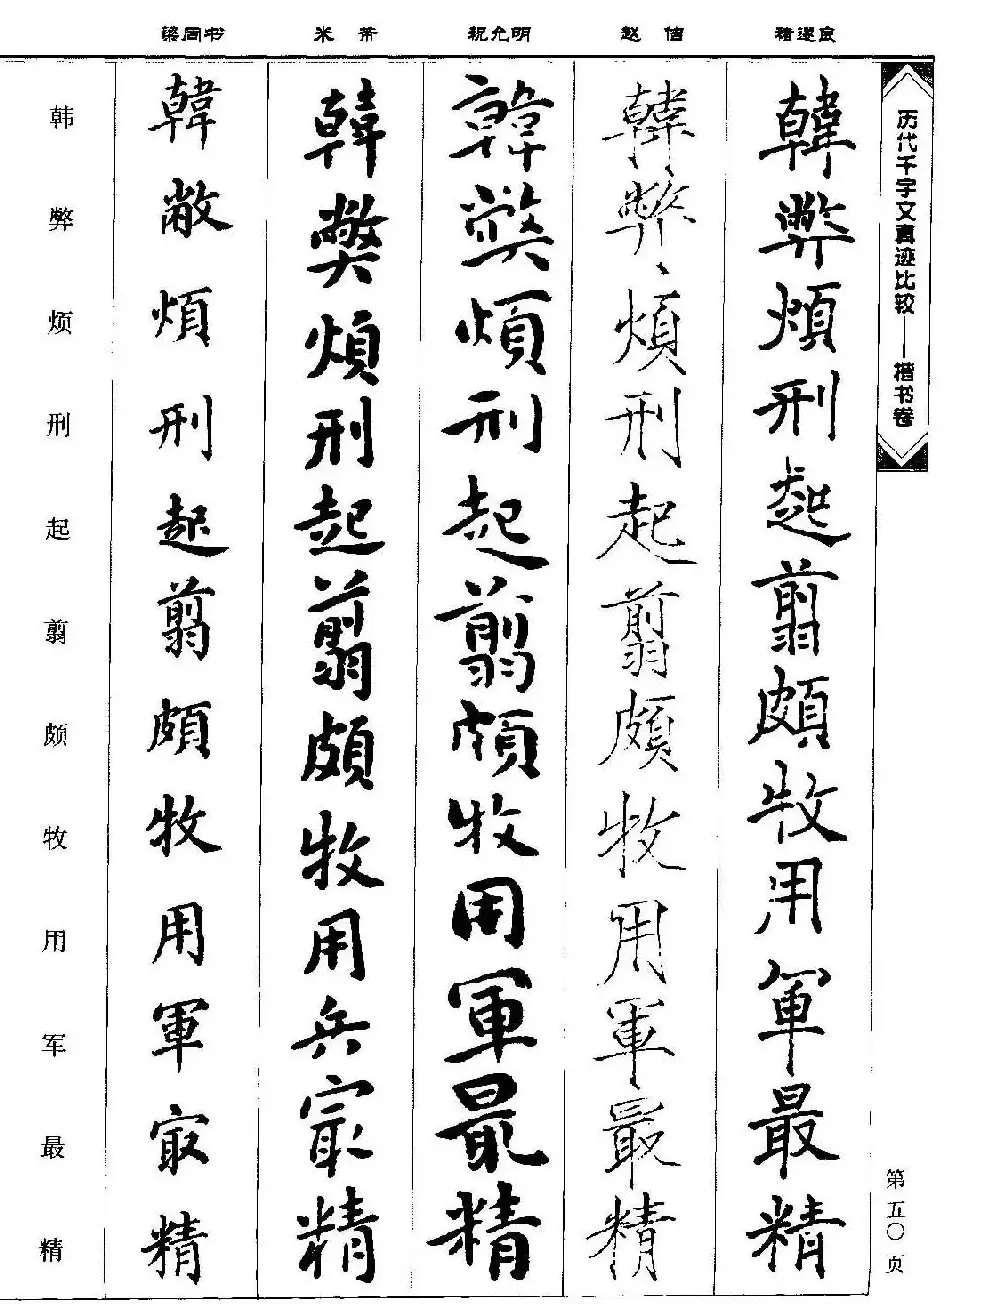 历代千字文真迹比较——楷书卷
第五〇页
褚遂良
韓弊煩刑起翦頗牧用軍最精
赵佶
韓弊煩刑起翦頗牧用軍最精
祝允明
韓獘煩刑起翦頗牧用軍最精
米芾
韓獘煩刑起翦頗牧用兵㝡精
梁同书
韓敝煩刑起翦頗牧用軍㝡精
韩弊烦刑起翦颇牧用军最精